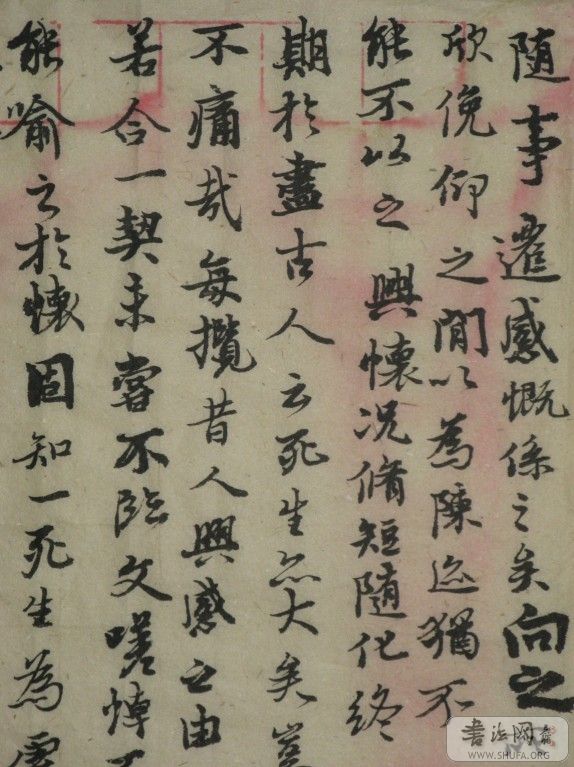 隨事遷感慨係之矣向之
欣俛仰之閒以為陳迹猶不
能不以之興懷況脩短隨化終
期於盡古人云死生亦大矣豈
不痛哉每攬昔人興感之由
若合一契未嘗不臨文嗟悼不
能喻之於懷固知一死生為虛
書法网
WWW.SHUFA.ORG